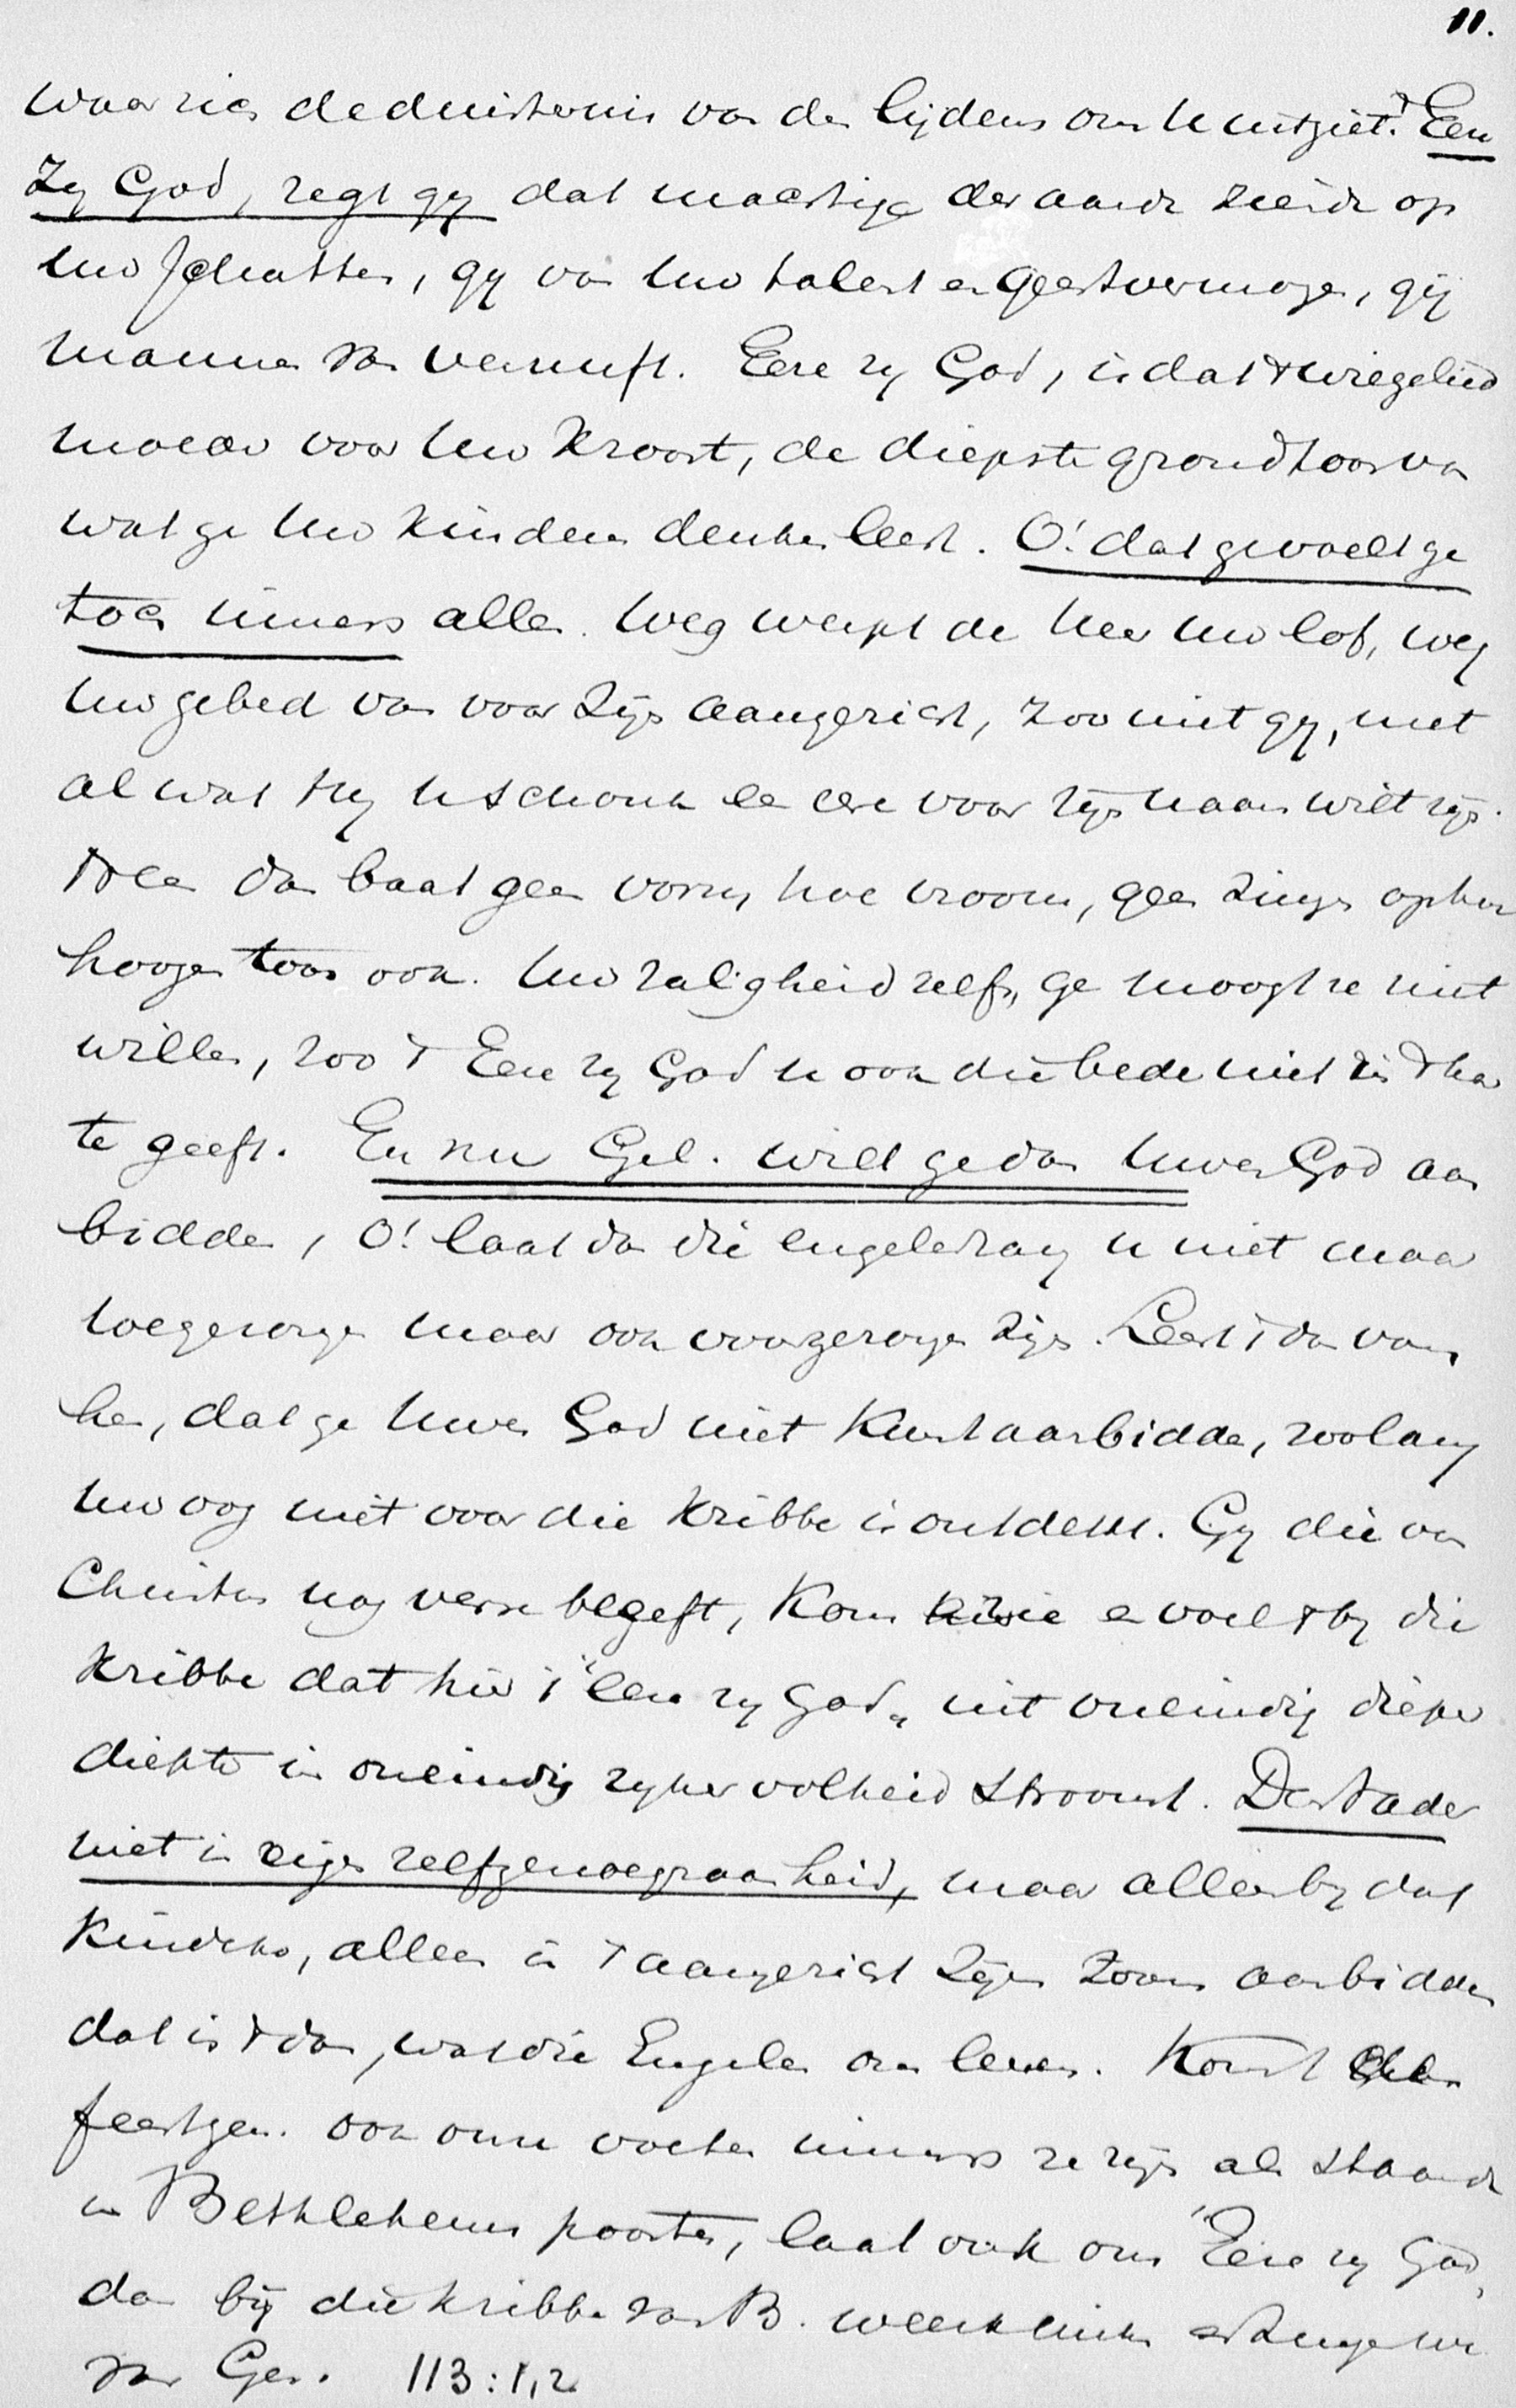 11.
waarin de duisternis van den lijdens ons U uitziet. Eere
zy God, zegt gy dat machtige der aarde ziende op
Uw schatten, gy van Uw talent en geestvermogen, gij
mannen van vernuft. Eere zy God, is dat 't wiegelied
moeder voor Uw Kroost, de diepste grondtoon van
wat ge Uw Kinderen denken leert. O! dat gevoelt ge
toch immers allen. Weg werpt de Heer Uw lof, weg
Uw gebed van voor Zijn aangezicht, zoo niet gy, met
al wat Hy U schonk een eere voor zijn naam wilt zijn.
Neen dan baat geen vorm, hoe vroom, geen zingen op hun
hoogen toon ook. Uw zaligheid zelfs, ge moogt ze niet
willen, zoo 't Eere zy God U ook die bede niet in 't har
te geeft. En nu Gel. wilt ge dan Uwen God aan
bidden, O! laat dan die engelenzang U niet maar
toegezongen maar ook voorgezongen zijn. Leert 't dan van
hen, dat ge Uwen God niet Kunt aanbidden, zoolang
Uw oog niet voor die Kribbe is ontdekt. Gy die van
Christus nog verre blyft, Kom en voelt by die
Kribbe dat hier 't "Eere zy God" uit oneindig dieper
diepte in oneindig ryker volheid stroomt. Den Vader
niet in eigen zelfgenoegzaamheid, maar alleen by dat
Kindeke, alleen in 't aangezicht Zijns Zoons aanbidden
dat is 't dan, wat die Engelen ons leeren. Komt dan
feestgen. ook onze voeten immers ze zijn als staande
in Bethlehems poorten, laat ook ons "Eere zy God"
dan bij die Kribbe van B. weerklinken en zingen we
van Gez. 113:1,2